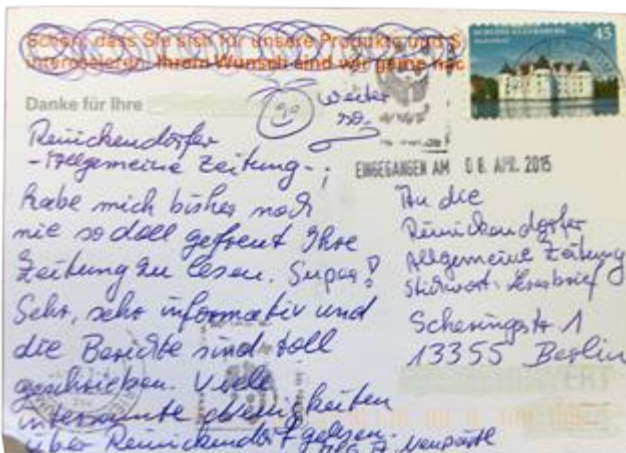 Schön, dass Sie sich für unsere Produkte und S
interessieren. Ihrem Wunsch sind wir gerne nac
Danke für Ihre
weiter
so.
Reinickendorfer
-Allgemeine Zeitung-;
habe mich bisher noch
nie so doll gefreut Ihre
Zeitung zu lesen. Super!
Sehr, sehr informativ und
die Berichte sind toll
geschrieben. Viele
interessante Neuigkeiten
über Reinickendorf gelesen.
45
EINGEGANGEN AM 08. APR. 2015
An die
Reinickendorfer
Allgemeine Zeitung
Stichwort: Leserbrief
Scheringstr. 1
13355 Berlin